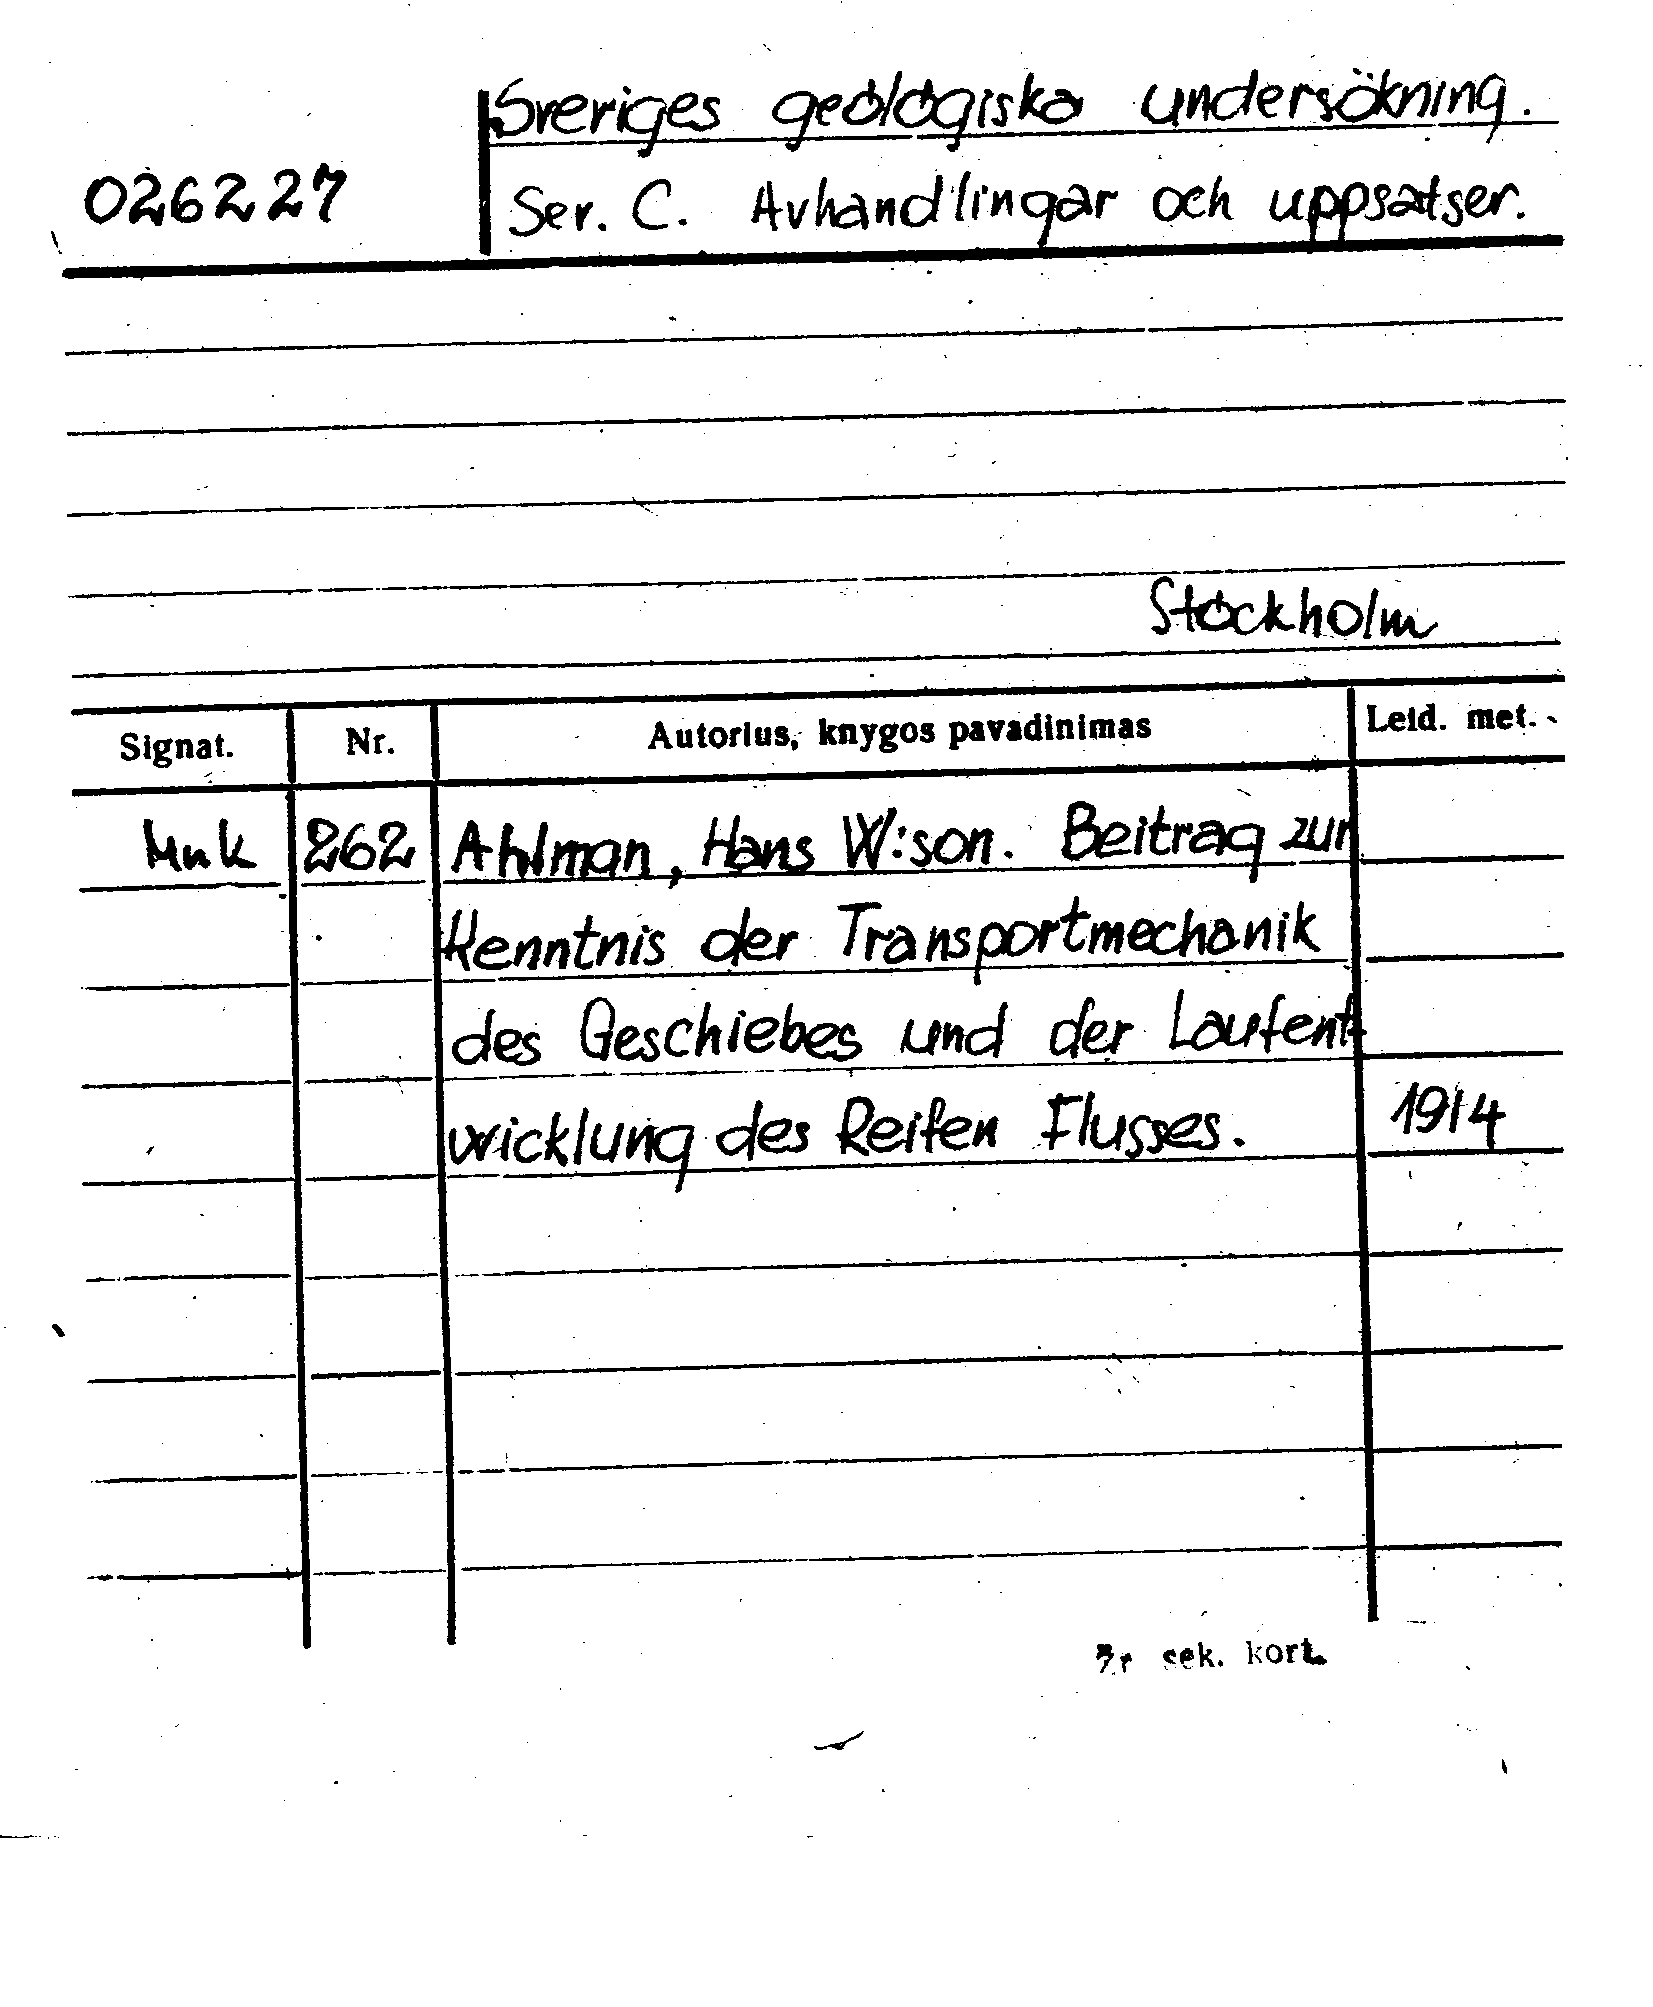 Sveriges geologiska undersökning.
026227
Ser. C. Avhandlingar och uppsatser.
Stockholm
Signat. Nr. Autorius, knygos pavadinimas Leid. met.
MnK 262 Ahlman, Hans W:son. Beitrag zur
Kenntnis der Transportmechanik
des Geschiebes und der Laufent-
wicklung des Reifen Flusses. 1914
Žr sek. kort.